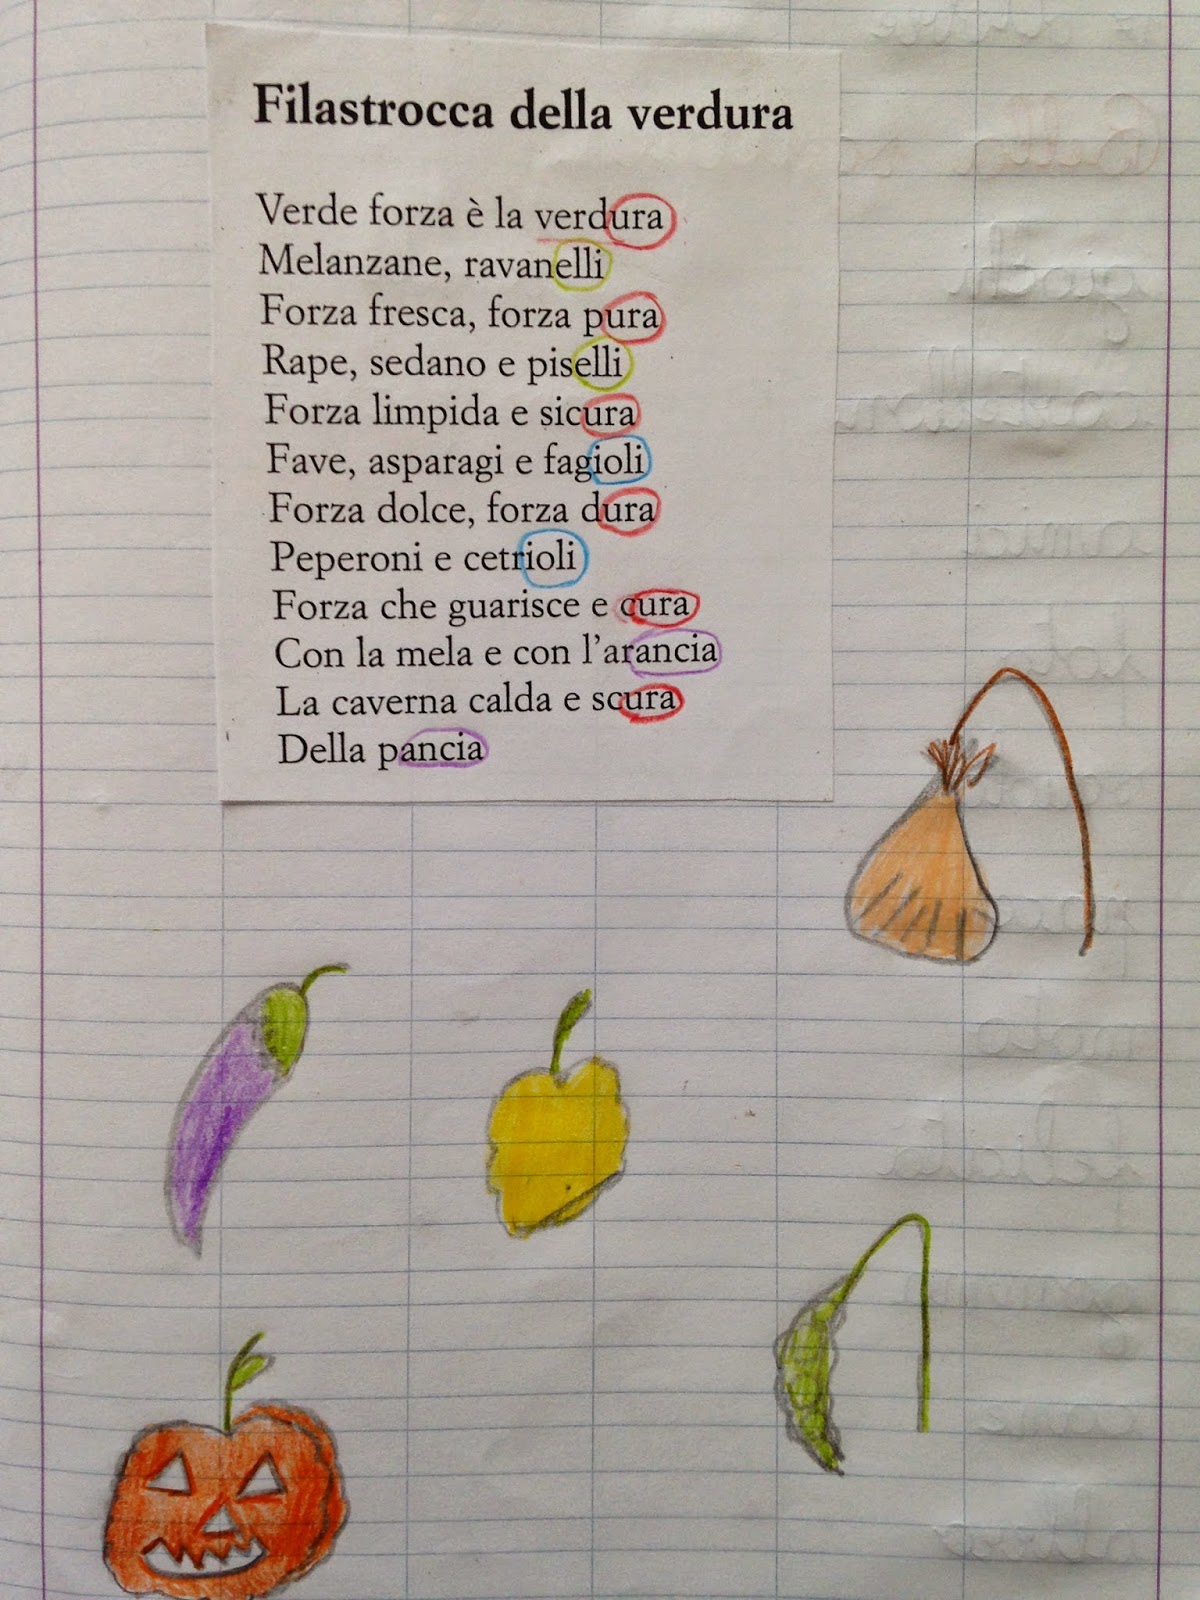 Filastrocca della verdura
Verde forza è la verdura
Melanzane, ravanelli
Forza fresca, forza pura
Rape, sedano e piselli
Forza limpida e sicura
Fave, asparagi e fagioli
Forza dolce, forza dura
Peperoni e cetrioli
Forza che guarisce e cura
Con la mela e con l'arancia
La caverna calda e scura
Della pancia